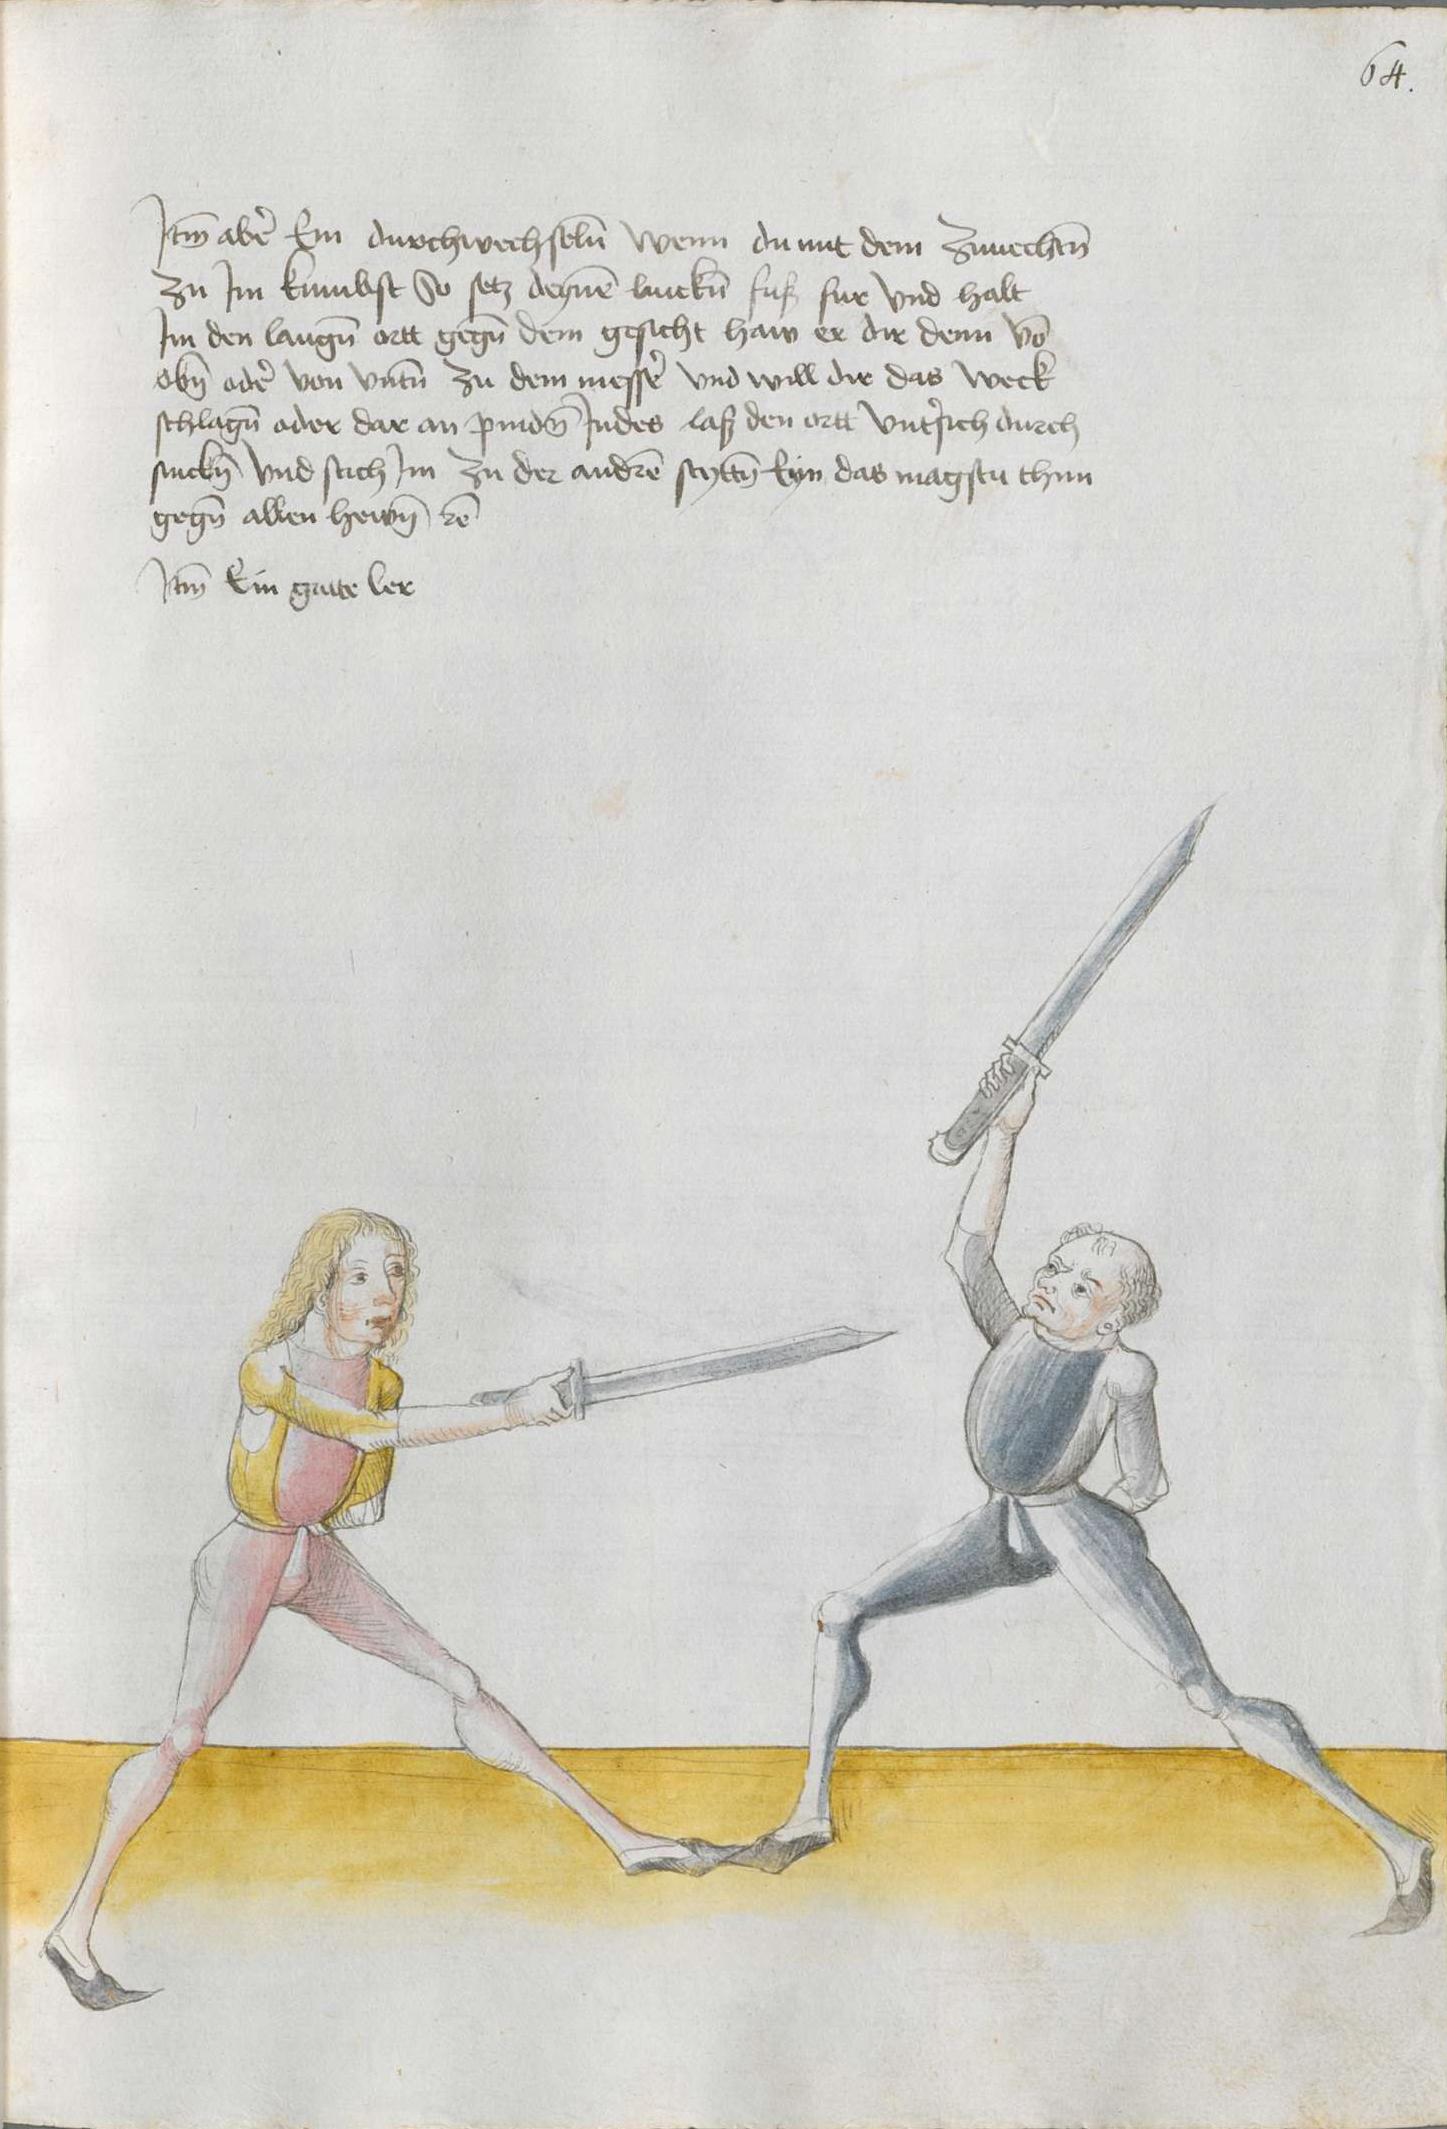 64.
Jtm̄ aber̄ Ein durchwechselñ Wenn du mit dem Zuuechtñ
Zu Jm kumbst So setz deynē linckñ fuß fur vnd halt
Jm den langñ ortt gegñ dem gesicht haw er dir denn vō
obñ oder̄ von vntñ zu dem messer̄ vnd will dir das weck
schlagñ oder dar an pindñ Jndes laß den ortt vntersich durch
sinckñ vnd stich Jm zu der andrē seyttñ Eyn das magstu thun
gegñ allen hewñ rē
Jtm̄ Ein gutte ler